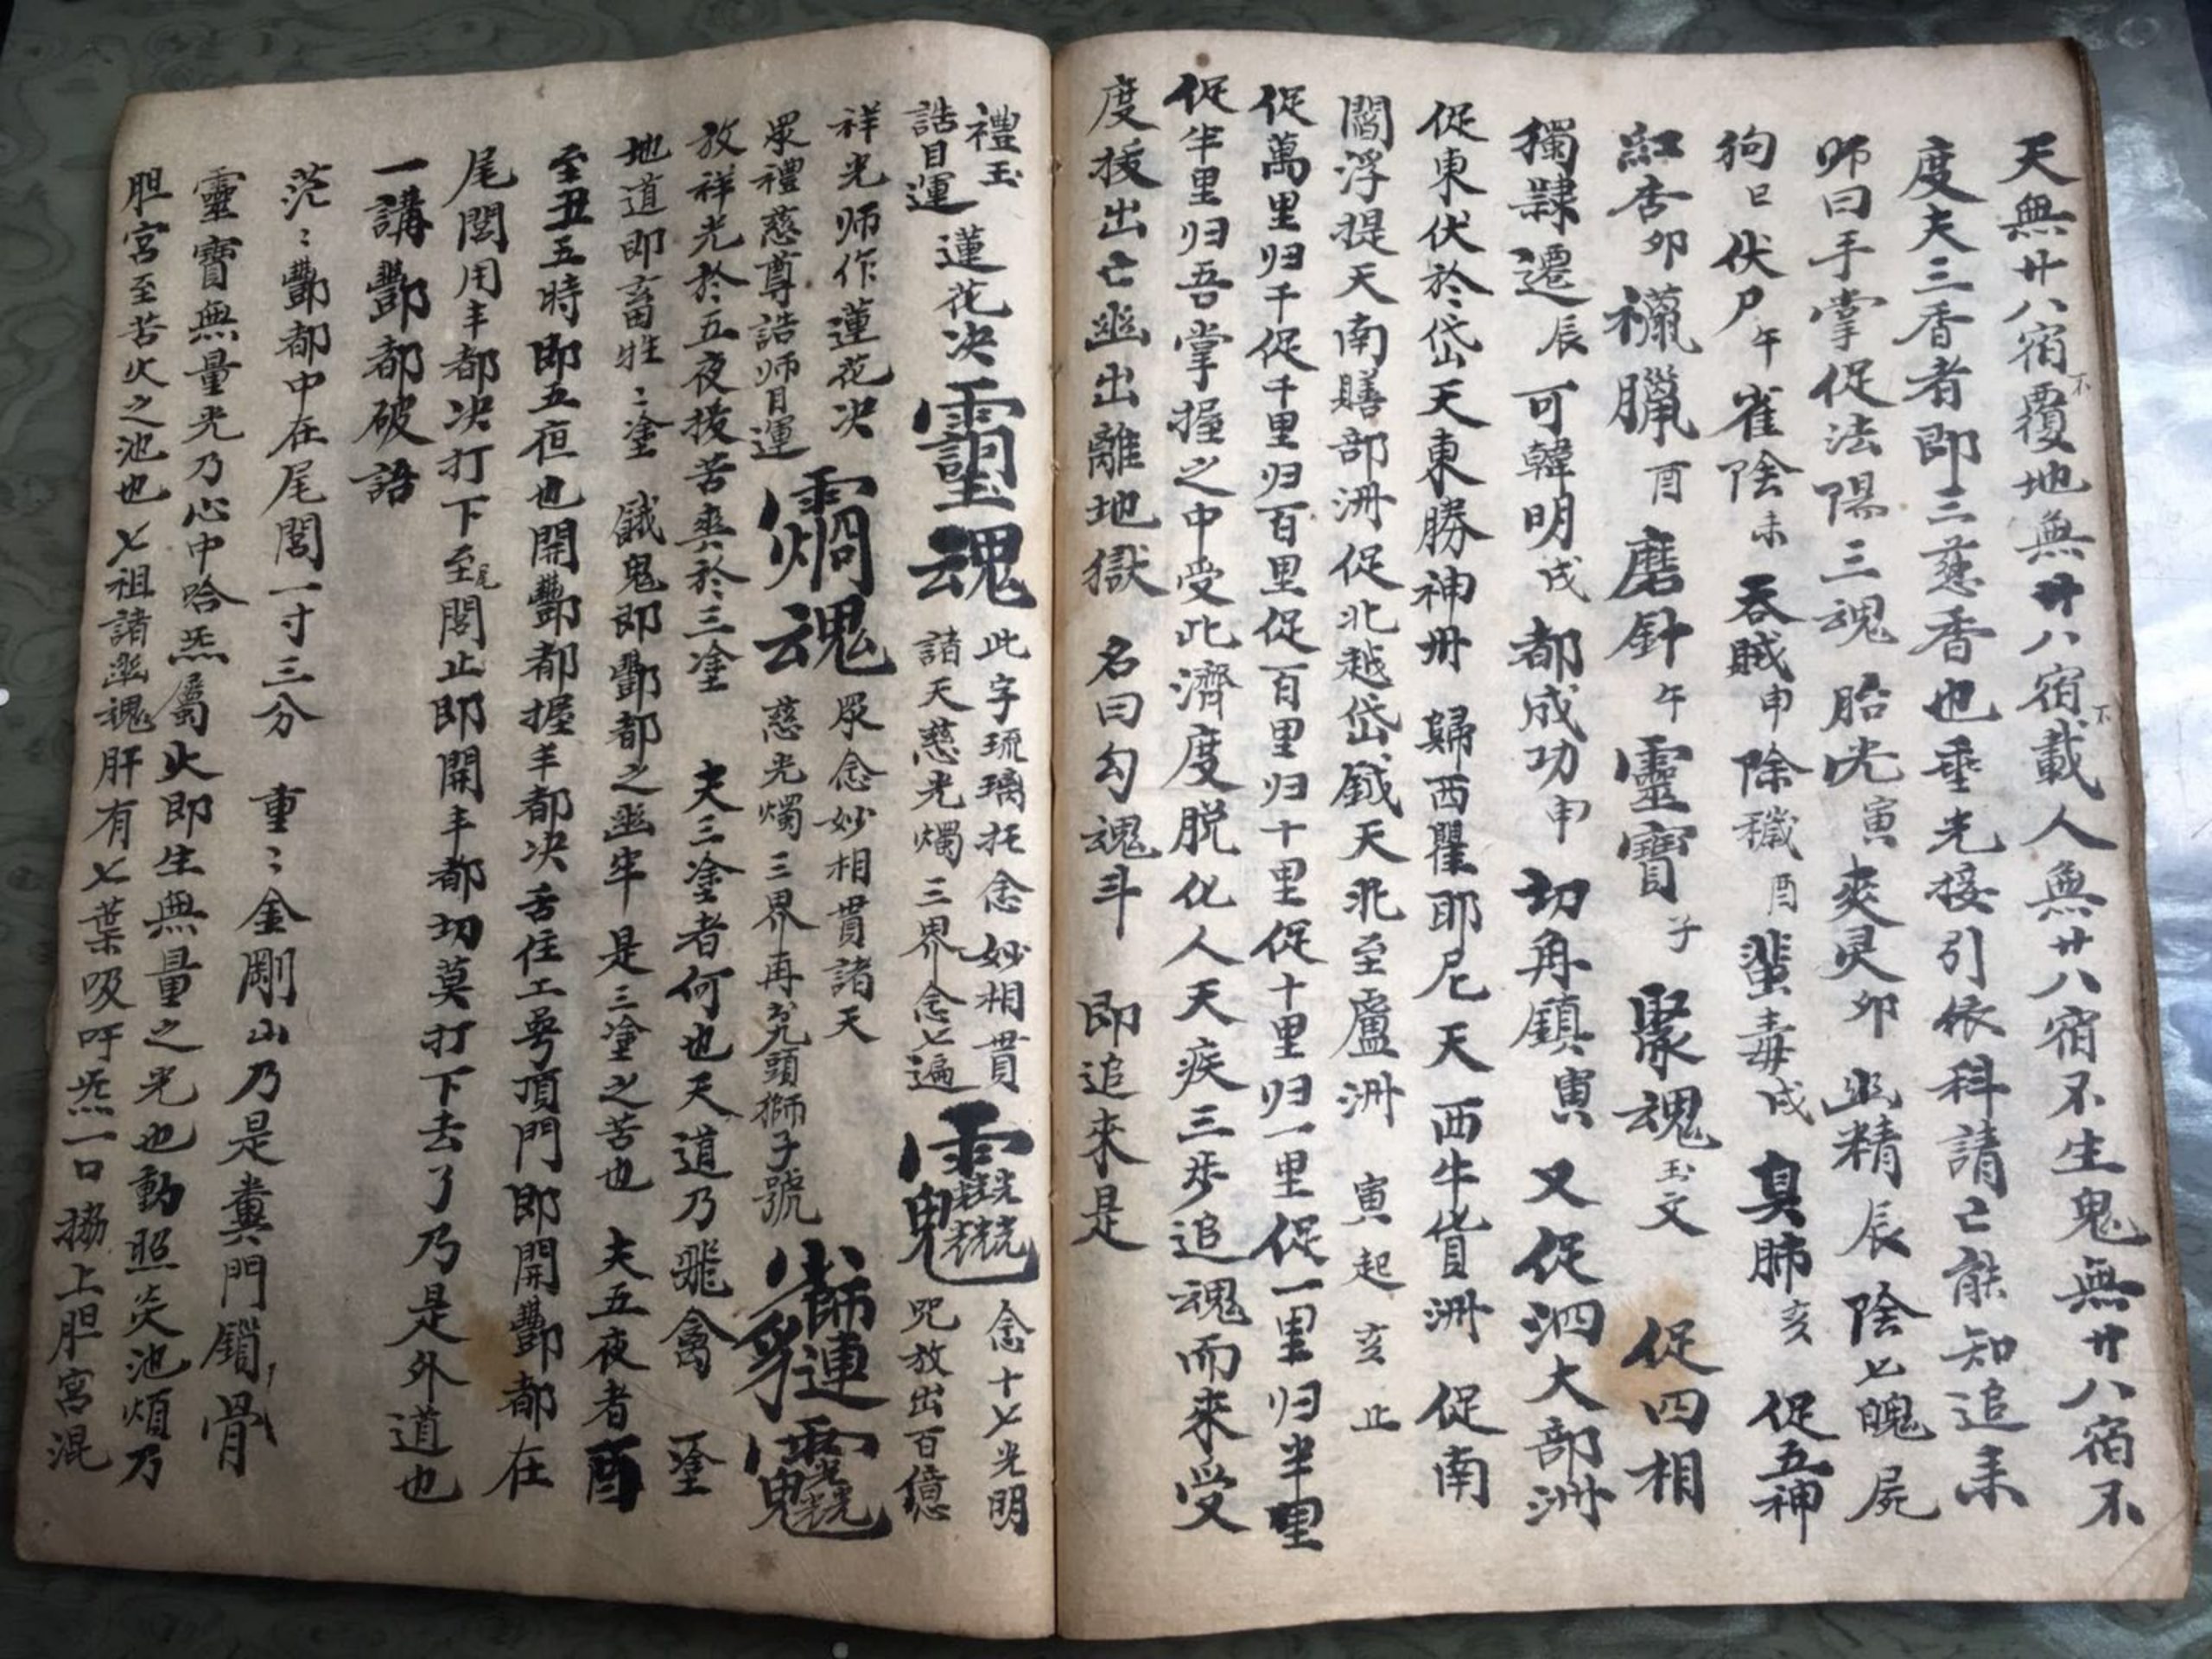 天無廿八宿不覆地無廿八宿不載人無廿八宿不生鬼無廿八宿不
度夫三香者即三慈香也垂光接引依科請亡能知追来
师曰手掌促法陽三魂 胎光寅 爽灵卯 幽精辰 陰七魄 屍
狗巳 伏尸午 雀陰未 吞贼申 除穢酉 蜚毒戌 臭肺亥 促五神
紅杏卯 臘酉 磨針午 靈寶子 聚魂玉文 促四相
獨隸遷辰 可韓明戌 都成功申 切角鎮寅 又促泗大部洲
促東伏於岱天東勝神州 歸西瞿耶尼天西牛貨洲 促南
閻浮提天南贍部洲促北越岱鉞天北至盧洲 寅起亥止
促萬里归千促千里归百里促百里归十里促十里归一里促一里归半里
促半里归吾掌握之中受此濟度脱化人天疾三步追魂而来受
度拔出亡幽出離地獄 名曰勾魂斗 即追來是
禮玉
誥目運
蓮花决
魂
此字琉璃托念妙相貫
諸天慈光燭三界念七遍
念十七光明
咒放出百億
祥光师作蓮花决 魂 眾念妙相貫諸天
眾禮慈尊誥师目運 慈光燭三界再九頭獅子號
放祥光於五夜拔苦爽於三塗 夫三塗者何也天道乃飛禽 塗
地道即畜牲:塗 餓鬼即酆都之幽牢 是三塗之苦也 夫五夜者酉
至丑五時即五夜也開酆都握丰都决舌住工号頂門即開酆都在
尾閭用丰都决打下至尾閭止即開丰都切莫打下去了乃是外道也
一講酆都破語
茫:酆都中在尾閭一寸三分 重:金剛山乃是糞門鎖骨
靈寶無量光乃心中哈炁屬火即生無量之光也動照炎池煩乃
胆宮至苦火之池也七祖諸幽魂肝有七葉吸吁炁一口搊上胆宮混